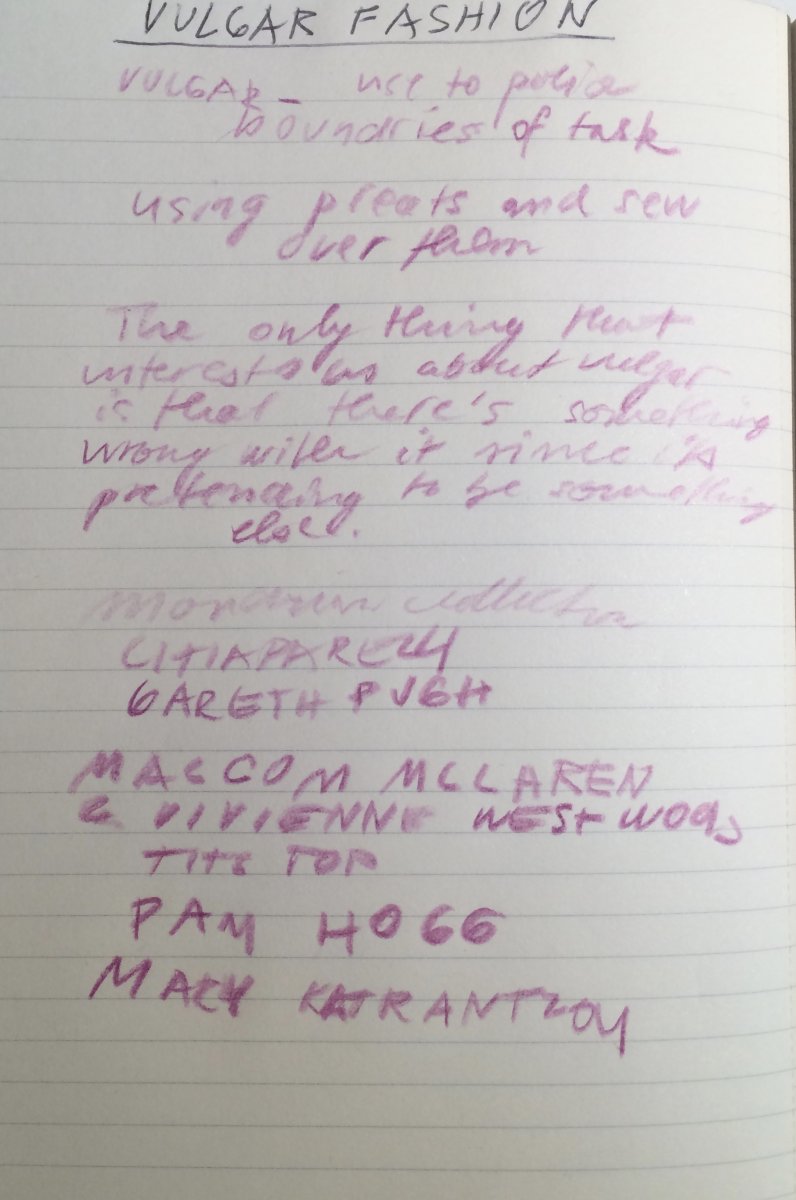 VULGAR FASHION
VULGAR - use to police
boundries of task
using pleats and sew
over them
The only thing that
interests us about vulgar
is that there's something
wrong with it since it's
pretending to be something
else.
collection
CHIAPARELLY
GARETH PUGH
MALCOM MCLAREN
& VIVIENNE WESTWOOD
TITS TOP
PAM HOGG
MARY KATRANTZOY